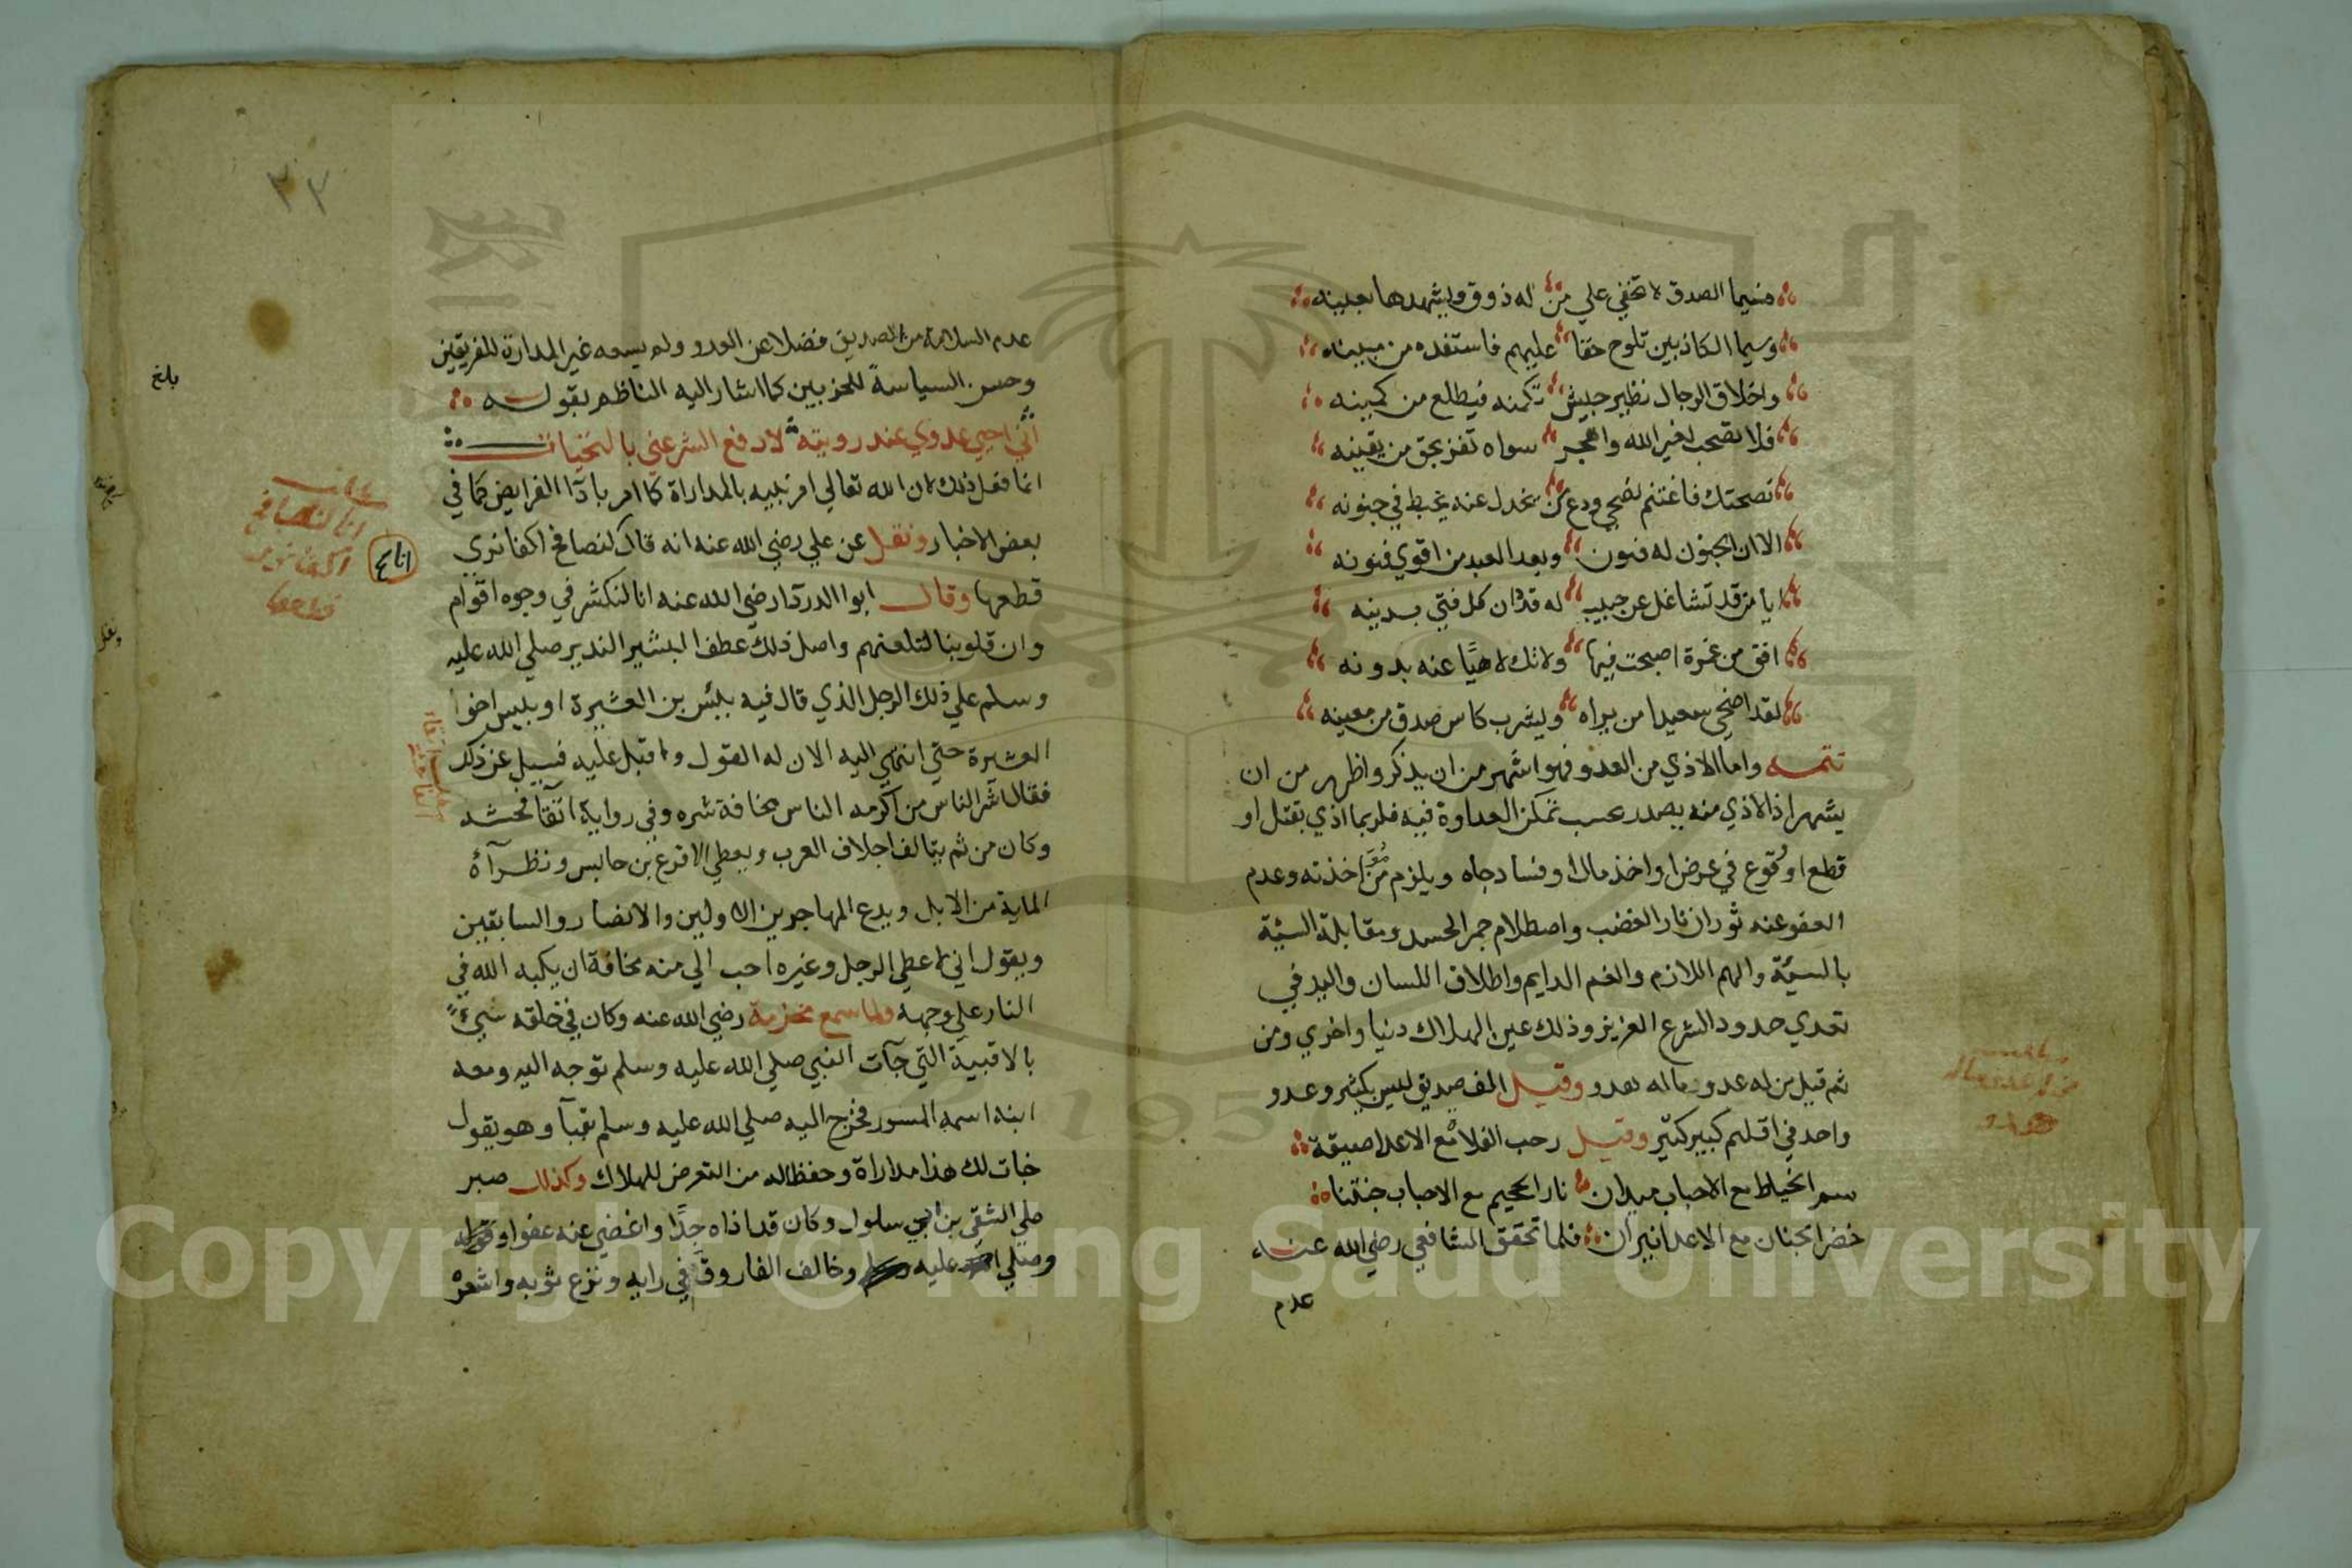 فسيما الصدق لا تخفي علي من له ذوق ويشهدها بعينه
وسيما الكاذبين تلوح حقا عليهم فاستفده من مبينه
واخلاق الرجال نظير جيش تكمنه فيطلع من كمينه
فلا تصحب لغير الله واهجر سواه تفز بحق من يقينه
نصحتك فاغتنم نصحي ودع من يخدل عنه يخبط في جنونه
الا ان الجنون له فنون وبعد العبد من اقوي فنونه
ايا من قد تشاغل عن حبيب له قد دان كل فتي بدينه
افق من غمرة اصبحت فيها ولا تك لاهيًا عنه بدونه
لقد اضحي سعيدا من يراه ويشرب كاس صدق من معينه
تتمـــه واما الاذي من العدو فهو اشهر من ان يذكر واظهر من ان
يشهر اذ الاذي منه بصدد بحسب تمكن العداوة فيه فلربما اذي بقتل او
قطع او وقوع في عرض او اخذ مال او فساد جاه ويلزم من مؤاخذته وعدم
العفو عنه ثوران نار الغضب واصطلام جمر الحسد ومقابلة السيئة
بالسيئة والهم اللازم والغم الدايم واطلاق اللسان واليد في
تعدي حدود الشرع العزيز وذلك عين الهلاك دنيا واخري ومن
ثم قيل من له عدو ماله هدو وقيـــل الف صديق ليس بكثير وعدو
واحد في اقلهم كبير كثير وقيـــل رحب الفلاة مع الاعدا ضيقة
سم الخياط مع الاحباب ميدان نار الجحيم مع الاحباب جنتنا
خضر الجنان مع الاعدا نيران فلما تحقق الشافعي رضي الله عنـــه
عدم
٣٢
عدم السلامة من الصديق فضلا عن العدو ولم يسعه غير المدارة للفريقين
وحسن السياسة للحزبين كما اشار اليه الناظم بقولـــه
اني احيي عدوي عند رويته لادفع الشر عني بالتحيات
انما فعل ذلك لان الله تعالي امر نبيه بالمداراة كما امر بادآ الفرايض كما في
بعض الاخبار ونقـــل عن علي رضي الله عنه انه قال لنصافح اكفا نري
قطعها وقالـــ ابوا الدردآ رضي الله عنه انا لنكشر في وجوه اقوام
وان قلوبنا لتلعنهم واصل ذلك عطف البشير النذير صلي الله عليه
وسلم علي ذلك الرجل الذي قال فيه بيئس بن العشيرة او بيس اخوا
العشيرة حتي انتهي اليه الان له القول واقبل عليه فسيل عن ذلك
فقال اشر الناس من اكرمه الناس مخافة شره وفي رواية اتقآ فحشه
وكان من ثم يتالف اجلاف العرب ويعطي الاقرع بن حابس ونظرآءٔ
الماية من الابل ويدع المهاجرين الاولين والانصار والسابقين
ويقول اني لاعطي الرجل وغيره احب الي منه مخافة ان يكبه الله في
النار علي وجهه ولما سمع مخرمة رضي الله عنه وكان في خلقه شيءً
بالاقبية التي جآت النبي صلي الله عليه وسلم توجه اليه ومعه
ابنه اسمه المسور فخرج اليه صلي الله عليه وسلم بقبآ وهو يقول
خبات لك هذا مداراة وحفظا له من التعرض للهلاك وكذلكـــ صبر
علي الشقي بن ابي سلول وكان قد اذاه جدًا واغضي عنه عفوا
وصلي عليه وخالف الفاروق في رايه ونزع ثوبه واشعرْ
بلغ
انا لنصافح
اكفا نري
قطعها
انا صح